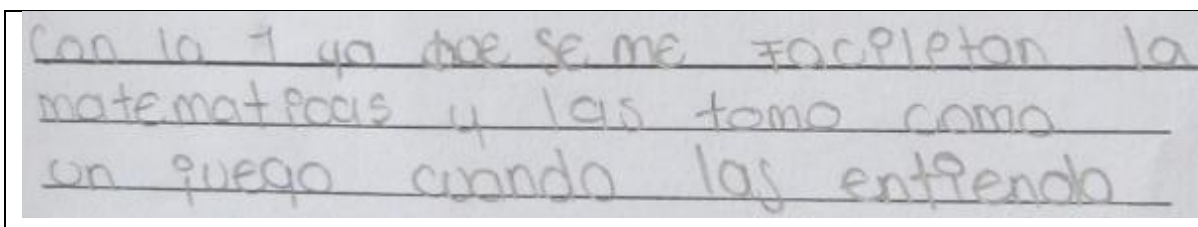 Con la 1 ya que se me facilitan la
matematicas y las tomo como
un juego cuando las entiendo